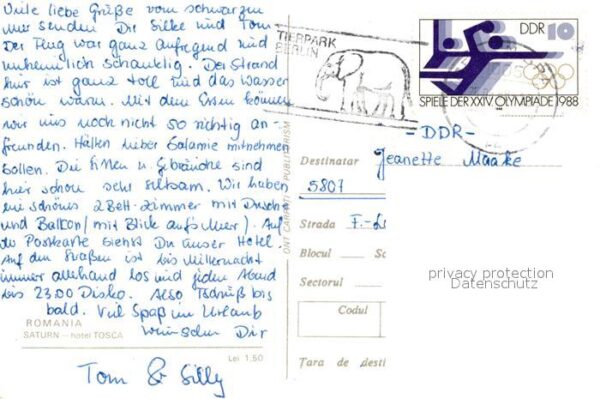 Viele liebe Grüße vom schwarzen
Meer senden Dir Silke und Tom
Der Flug war ganz Aufregend und
unheimlich schaukelig. Der Strand
hier ist ganz toll und das Wasser
schön warm. Mit dem Essen können
wir uns noch nicht so richtig an-
freunden. Hätten lieber Salamie mitnehmen
sollen. Die Sitten u. Gebräuche sind
hier schon sehr seltsam. Wir haben
ein schönes 2Bett-Zimmer mit Dusche
und Balkon (mit Blick aufs Meer). Auf
der Postkarte siehst Du unser Hotel.
Auf den Straßen ist bis Mitternacht
immer allerhand los und jeden Abend
bis 23.00 Disko. Also Tschüß bis
bald. Viel Spaß im Urlaub
wünschen Dir
Tom & Silly
ROMANIA
SATURN – hotel TOSCA
Lei 1.50
ONT CARPAȚI PUBLITURISM
TIERPARK
BERLIN
DDR 10
SPIELE DER XXIV. OLYMPIADE 1988
- DDR -
Destinatar Jeanette
5807
Strada F.-
Blocul Sc
Sectorul
Codul
Țara de desti
privacy protection
Datenschutz